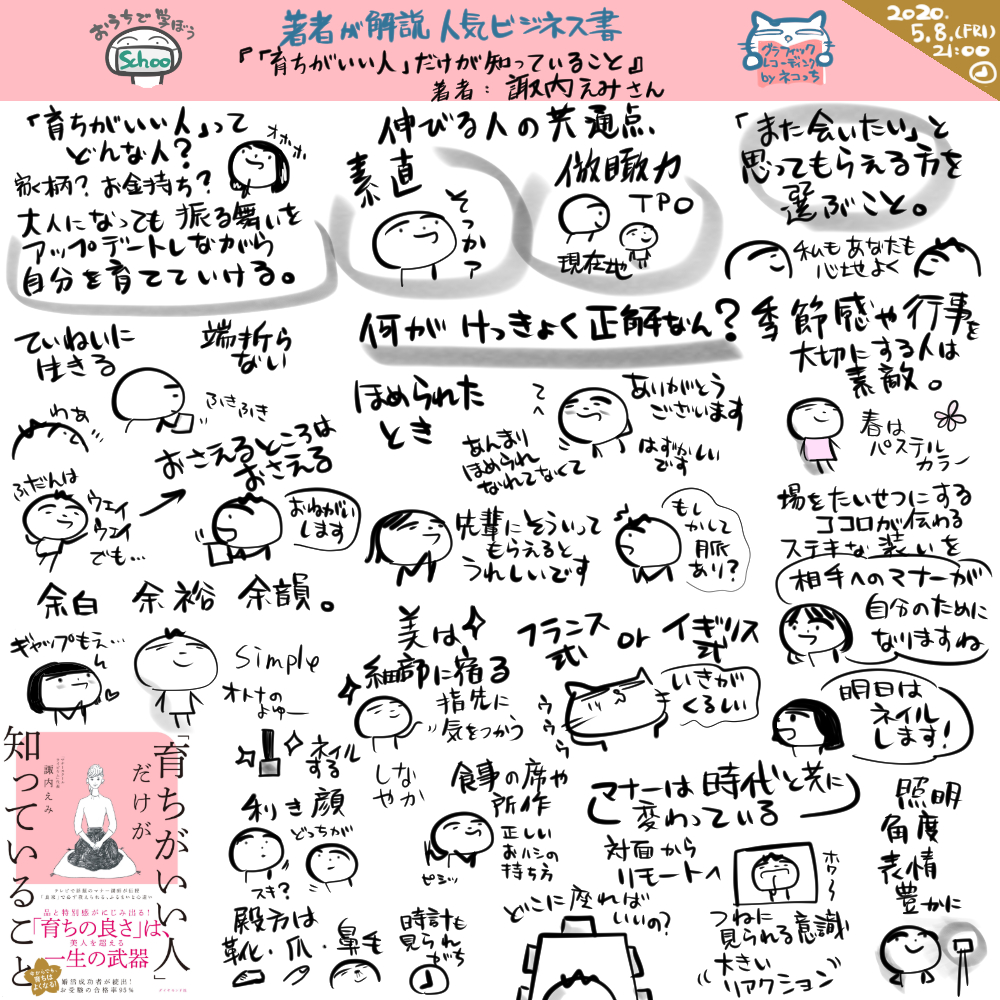 おうちで学ぼう
Schoo
著者が解説 人気ビジネス書
『「育ちがいい人」だけが知っていること』
著者：諏内えみさん
グラフィック
レコーディング
by ネコっち
2020.
5.8.(FRI)
21:00
「育ちがいい人」って
どんな人？
オホホ
家柄？ お金持ち？
大人になっても 振る舞いを
アップデートしながら
自分を育てていける。
ていねいに
生きる
端折ら
ない
わぁ
ふきふき
おさえるところは
おさえる
ふだんは
ウェイ
ウェイ
でも…
おねがい
します
余白 余裕 余韻。
ギャップもえ…
simple
オトナの
よゆー
伸びる人の共通点
素直
そっかァ
俯瞰力
TPO
現在地
何が けっきょく 正解なん？
ほめられた
とき
てへ
ありがとう
ございます
あんまり
ほめられ
なれてなくて
はずかしい
です
先輩にそういって
もらえると
うれしいです
もし
かして
脈
あり？
美は
細部に宿る
指先に
気をつかう
しな
やか
ネイル
する
利き顔
どっちが
スキ？
殿方は
靴・爪・鼻毛
時計も
見られ
がち
フランス
式
or
イギリス
式
ううう
いきが
くるしい
食事の席や
所作
正しい
おハシの
持ち方
ピシッ
マナーは時代と共に
変わっている
対面から
リモートへ
どこに座れば
いいの？
つねに
見られる意識
大きい
リアクション
「また会いたい」と
思ってもらえる方を
選ぶこと。
私もあなたも
心地よく
季節感や行事を
大切にする人は
素敵。
春は
パステル
カラー
場をたいせつにする
ココロが伝わる
ステキな装いを
相手へのマナーが
自分のために
なりますね
明日は
ネイル
します！
照明
角度
表情
豊かに
「育ちがいい人」
だけが
知っていること
諏内えみ
品と特別感がにじみ出る！
「育ちの良さ」は、
美人を超える
一生の武器
今からでも
育ちは
よくなる！
婚活成功者が続出！
お受験の合格率95%
ダイヤモンド社